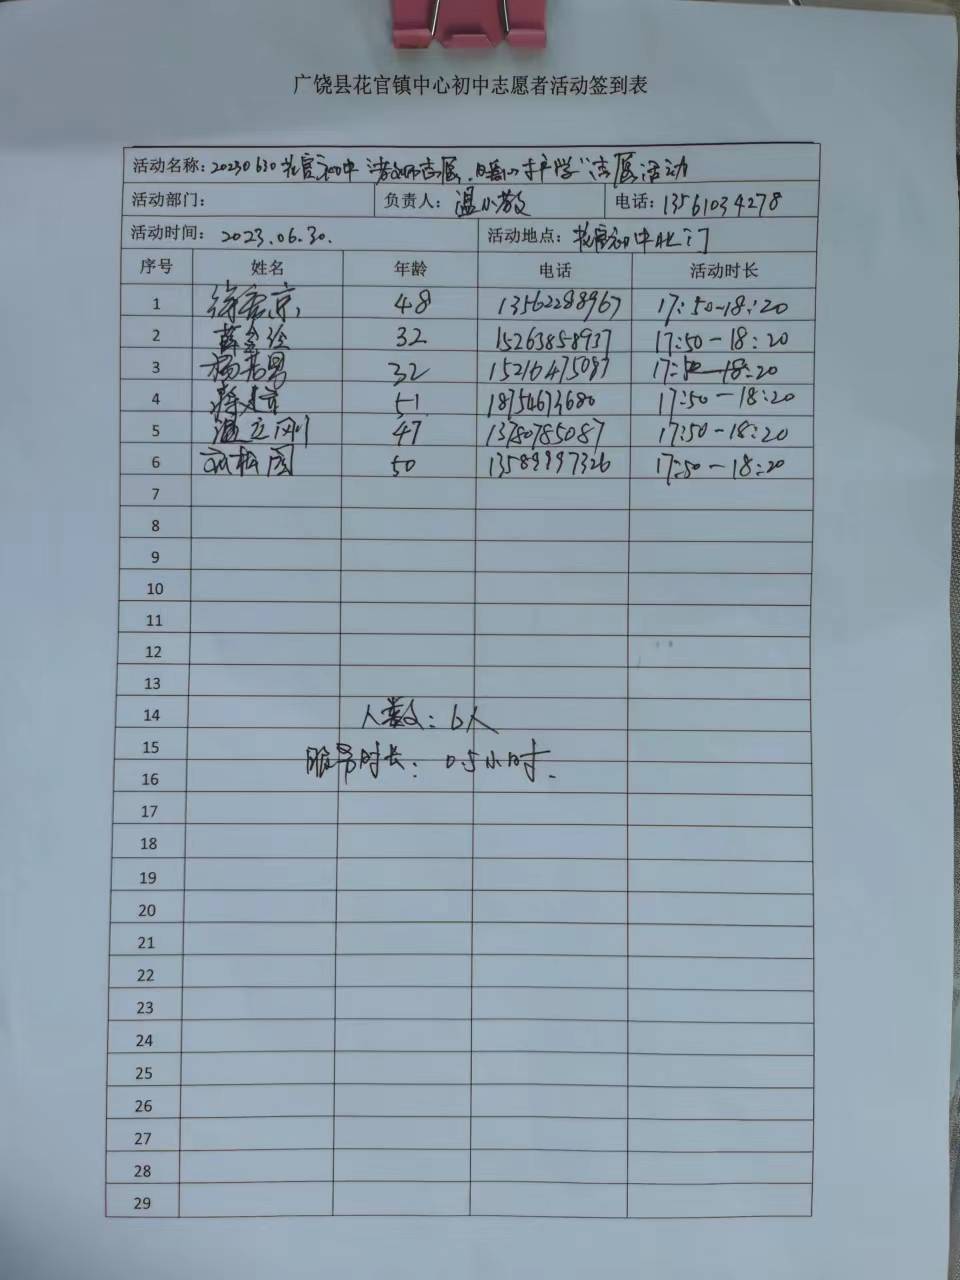 广饶县花官镇中心初中志愿者活动签到表
活动名称：20230630花官初中 志愿 护学"志愿活动
活动部门： 负责人：温小教 电话：13561034278
活动时间：2023.06.30. 活动地点：花官初中北门
序号 姓名 年龄 电话 活动时长
1 48 13562288967 17:50-18:20
2 32 15263858937 17:50-18:20
3 杨若男 32 15216475087 17:50-18:20
4 51 18754673680 17:50-18:20
5 温立刚 47 13780785087 17:50-18:20
6 50 13589997326 17:50-18:20
7
8
9
10
11
12
13
14 人数：6人
15 服务时长：0.5小时.
16
17
18
19
20
21
22
23
24
25
26
27
28
29